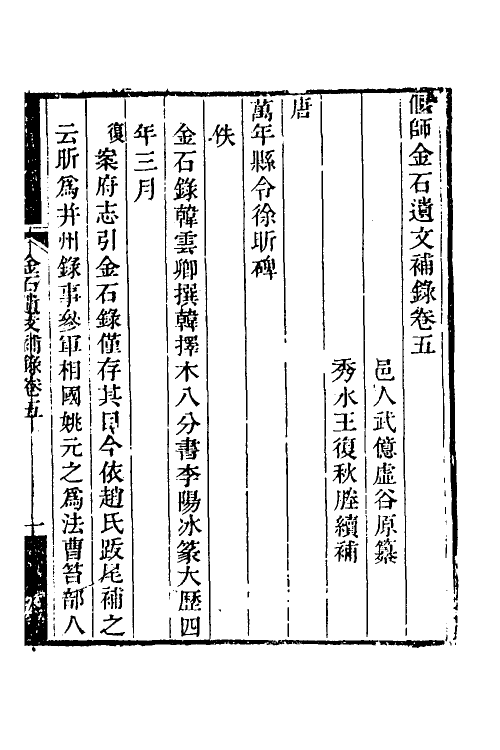 偃師金石遺文補錄卷五
邑人武億虛谷原纂
秀水王復秋塍續補
唐
萬年縣令徐昕碑
佚
金石錄韓雲卿撰韓擇木八分書李陽冰篆大歷四
年三月
復案府志引金石錄僅存其目今依趙氏跋尾補之
云昕爲并州錄事參軍相國姚元之爲法曹笞部人
金石遺文補錄卷五
一